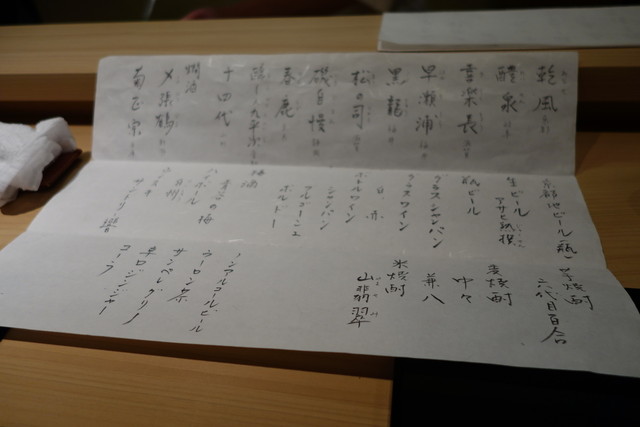 乾風
醴泉
喜楽長
早瀬浦
黒龍
松の司
磯自慢
春鹿
醸し人九平次
十四代
燗酒
〆張鶴
菊正宗
京都地ビール(瓶)
生ビール
アサヒ熟撰
瓶ビール
グラスシャンパン
グラスワイン
白、赤
ボトルワイン
シャンパン
ブルゴーニュ
ボルドー
梅酒
ウイスキー
サントリー 響
芋焼酎
六代目百合
麦焼酎
中々
兼八
米焼酎
山翡翠
ノンアルコールビール
ウーロン茶
サンペレグリノ
辛口ジンジャー
コーラ